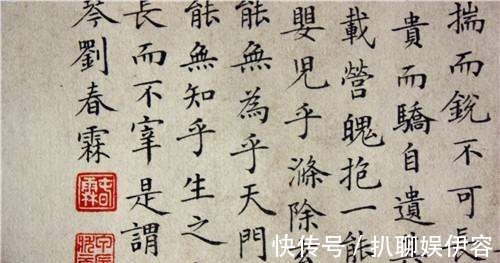 揣而銳不可長
貴而驕自遺
載營魄抱一能
嬰兒乎滌除
能無為乎天門
能無知乎生之
長而不宰是謂
琴劉春霖
春霖
快传号 / 扒聊娱伊容